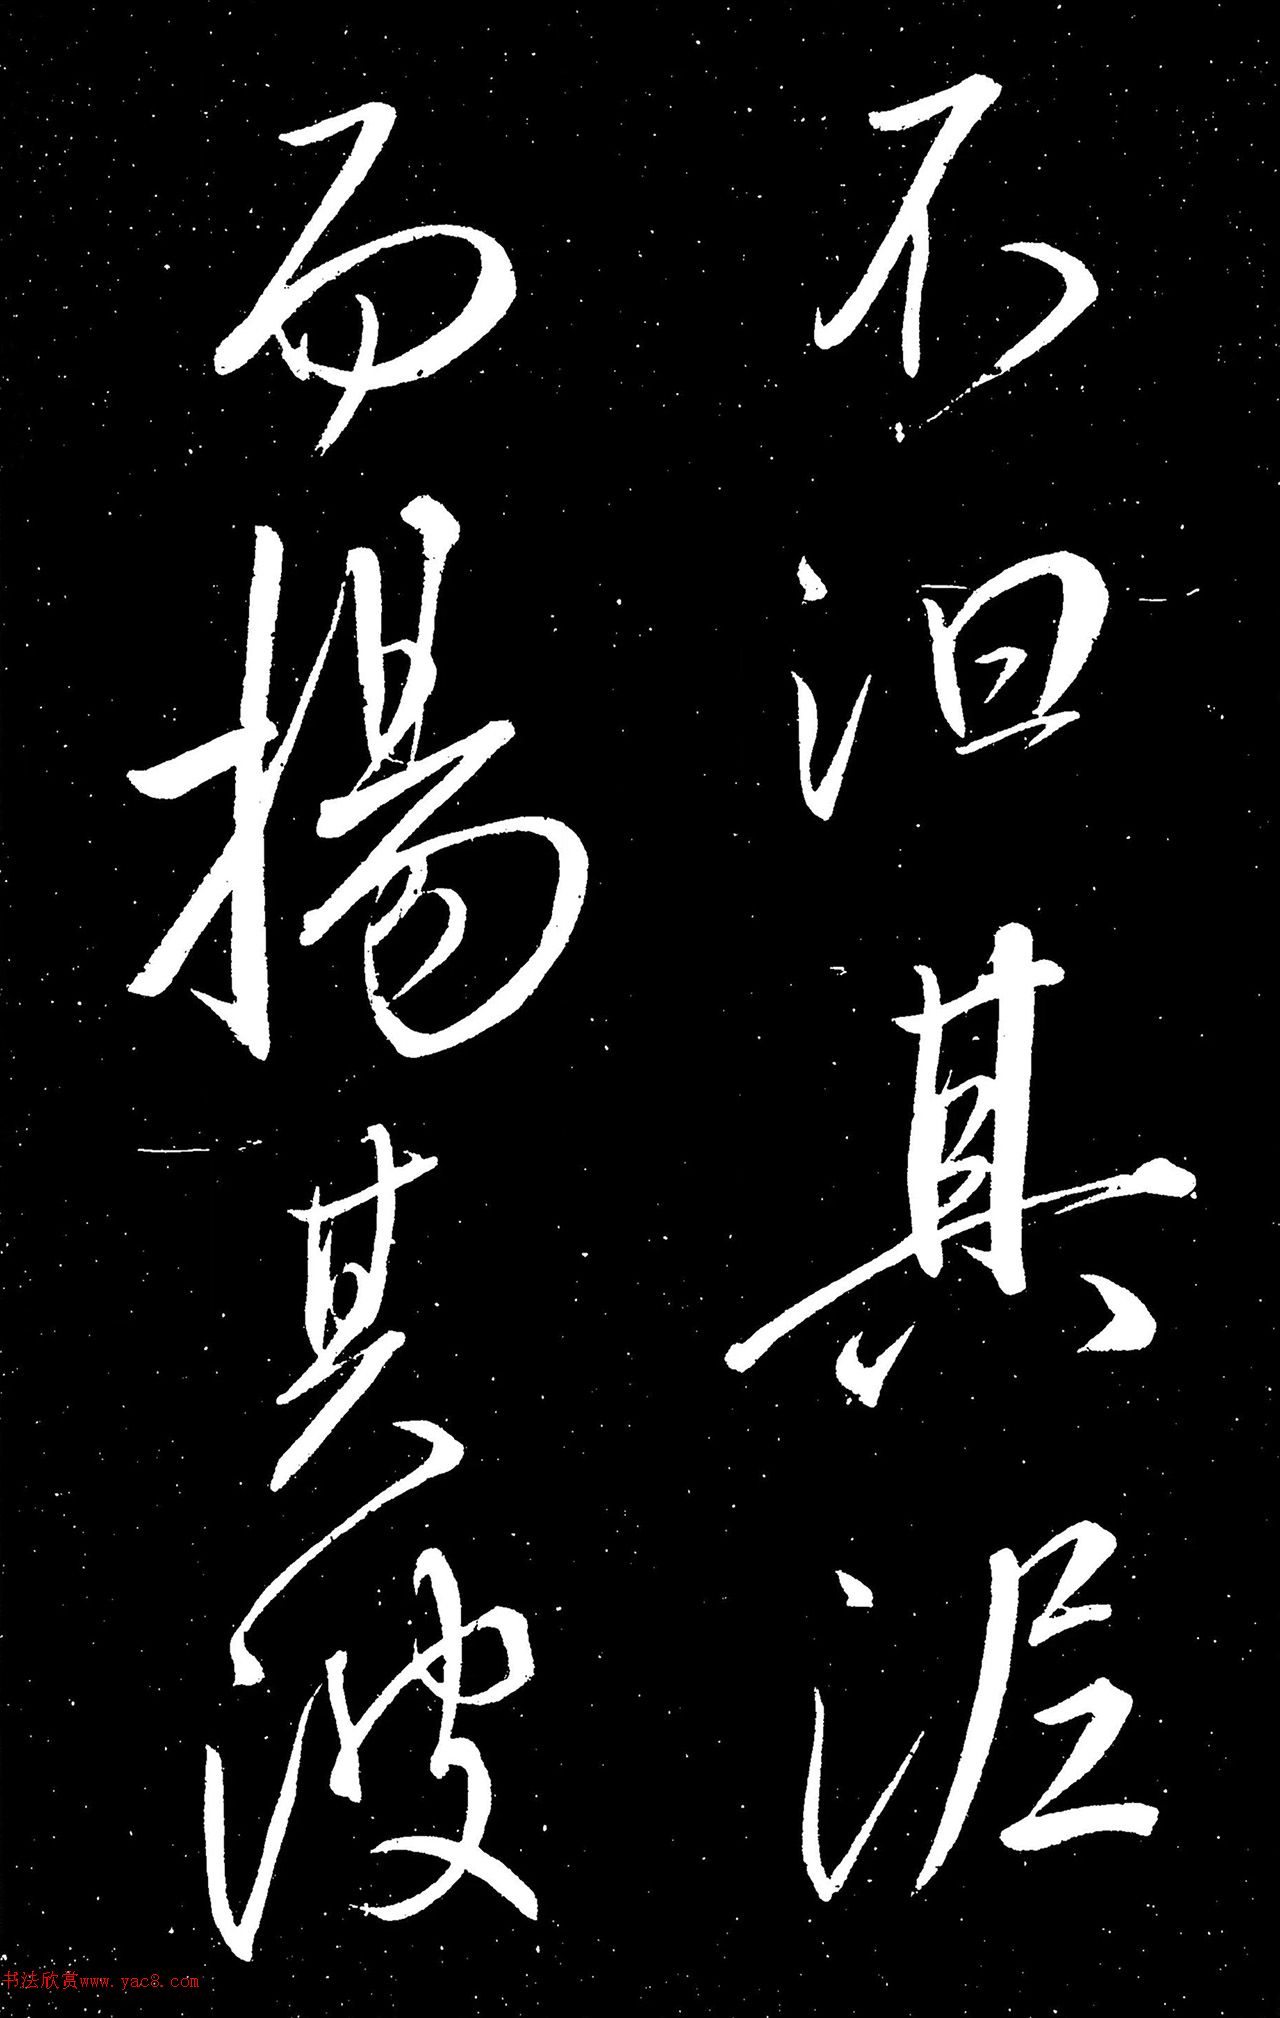 不汩其泥
而揚其波
书法欣赏www.yac8.com